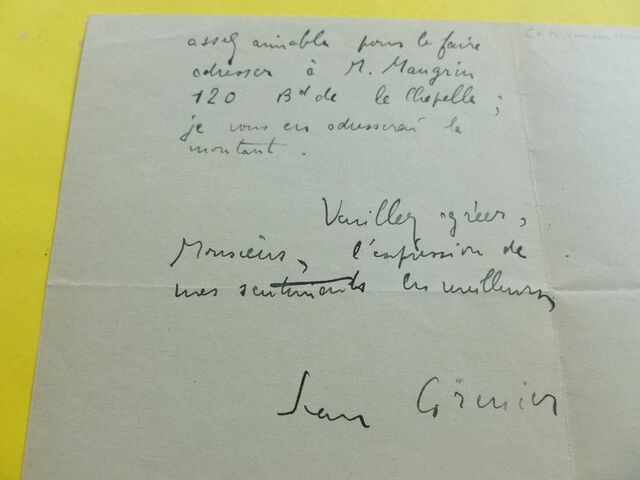 assez aimable pour le faire
adresser à M. Maugrin
120 Bd de la Chapelle ;
je vous en adresserai le
montant .
Veuillez agréer,
Monsieur, l'expression de
mes sentiments les meilleurs,
Jean Grenier